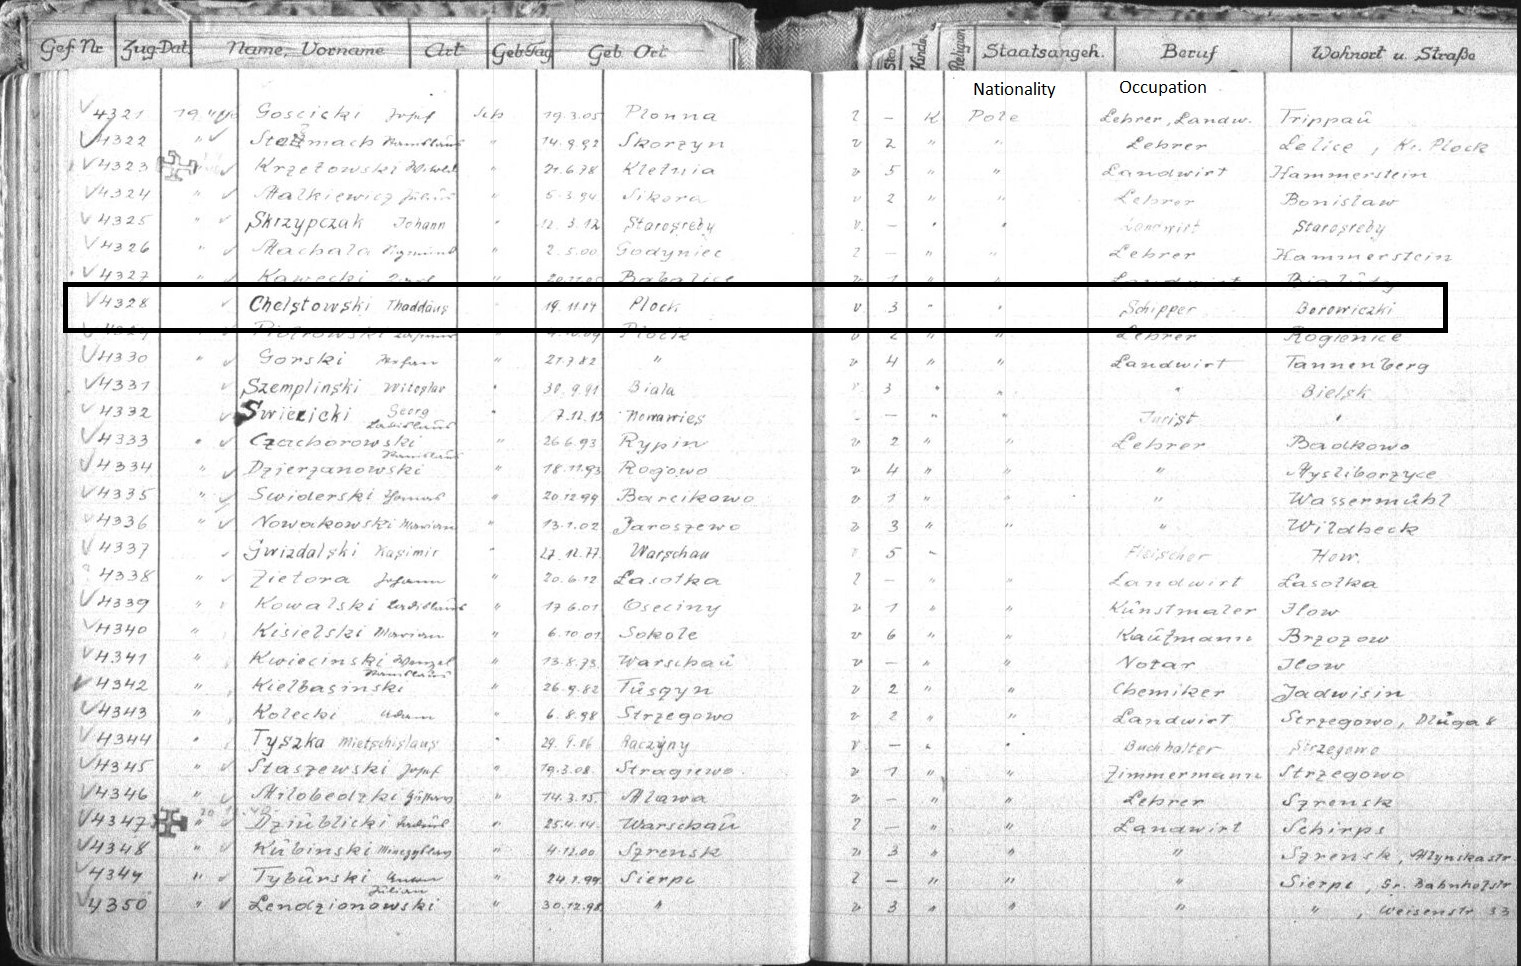 Gef Nr Zug-Dat. Name, Vorname Art Geb Tag Geb Ort Kinder Religion Staatsangeh. Beruf Wohnort u. Straße
Nationality Occupation
4321 Goscicki Josef Sch 19.3.05 Plonna ? – K Pole Lehrer, Landw. Trippau
4322 " 14.9.92 Skorzyn v 2 " " Lehrer Lelice, Kr. Plock
4323 Krzetowski 21.6.78 Kletnia v 5 " " Landwirt Hammerstein
4324 " Malkiewicz Julius " 5.3.94 Sikora v 2 " " Lehrer Bonislaw
4325 " Skrzypczak Johann " 12.3.12 Starogreby v. – " " Landwirt Starogreby
4326 " Machala Sigmund " 2.5.00 Godyniec ? – " " Lehrer Hammerstein
4327 " Kawecki Babalice v 1 " " Landwirt
4328 Chelstowski Thaddäus " 19.11.04 Plock v 3 " " Schipper Borowiczki
Piotrowski Plock v 2 " " Lehrer Rogienice
4330 " Gorski Stefan " 21.7.82 " v 4 " " Landwirt Tannenberg
4331 Szemplinski Witoslav " 30.9.91 Biala v 3 " " " Bielsk
4332 Swiezicki Georg " 7.12.12 Nowawies – – " " Jurist "
4333 " Czachorowski Ladislaus " 26.6.93 Rypin v 2 " " Lehrer Badkowo
4334 " Dzierzanowski Stanislaus " 18.11.93 Rogowo v 4 " " " Mysliborzyce
4335 " Swiderski Thomas " 20.12.99 Barcikowo v 1 " " " Wassermühl
4336 " Nowakowski Marian " 13.1.02 Jaroszewo v 3 " " " Wildbeck
4337 Gwizdalski Kasimir " 27.12.77 Warschau v 5 " Fleischer How.
4338 " Zietora Johann " 20.6.12 Lasotka ? – " " Landwirt Lasotka
4339 " Kowalski Ladislaus " 17.6.01 Oseciny v 1 " " Kunstmaler Ilow
4340 " Kisielski Marian " 6.10.01 Sokole v 6 " " Kaufmann Brzozow
4341 " Kwiecinski Wenzel " 13.8.73 Warschau v – " " Notar Ilow
4342 " Kielbasinski Stanislaus " 26.9.82 Tuszyn v 2 " " Chemiker Jadwisin
4343 " Kolecki Adam " 6.8.98 Strzegowo v 2 " " Landwirt Strzegowo, Dluga 8
4344 " Tyszka Mietschislaus " 29.9.06 Raczyny v – " " Buchhalter Strzegowo
4345 " Staszewski Josef " 19.3.08. Stragiewo v 1 " " Zimmermann Strzegowo
4346 " Milobedzki " 14.3.15. Mlawa v – " " Lehrer Szrensk
4347 " Dziublicki " 25.4.14. Warschau ? – " " Landwirt Schirps
4348 " Kubinski " 4.12.00 Szrensk v 3 " " " Szrensk, Mlynskastr.
4349 " Tyburski " 24.1.99 Sierpc ? – " " " Sierpc, Gr. Bahnhofstr
4350 " Lendzionowski Julian " 30.12.98 " v 3 " " " ", Weisenstr. 33